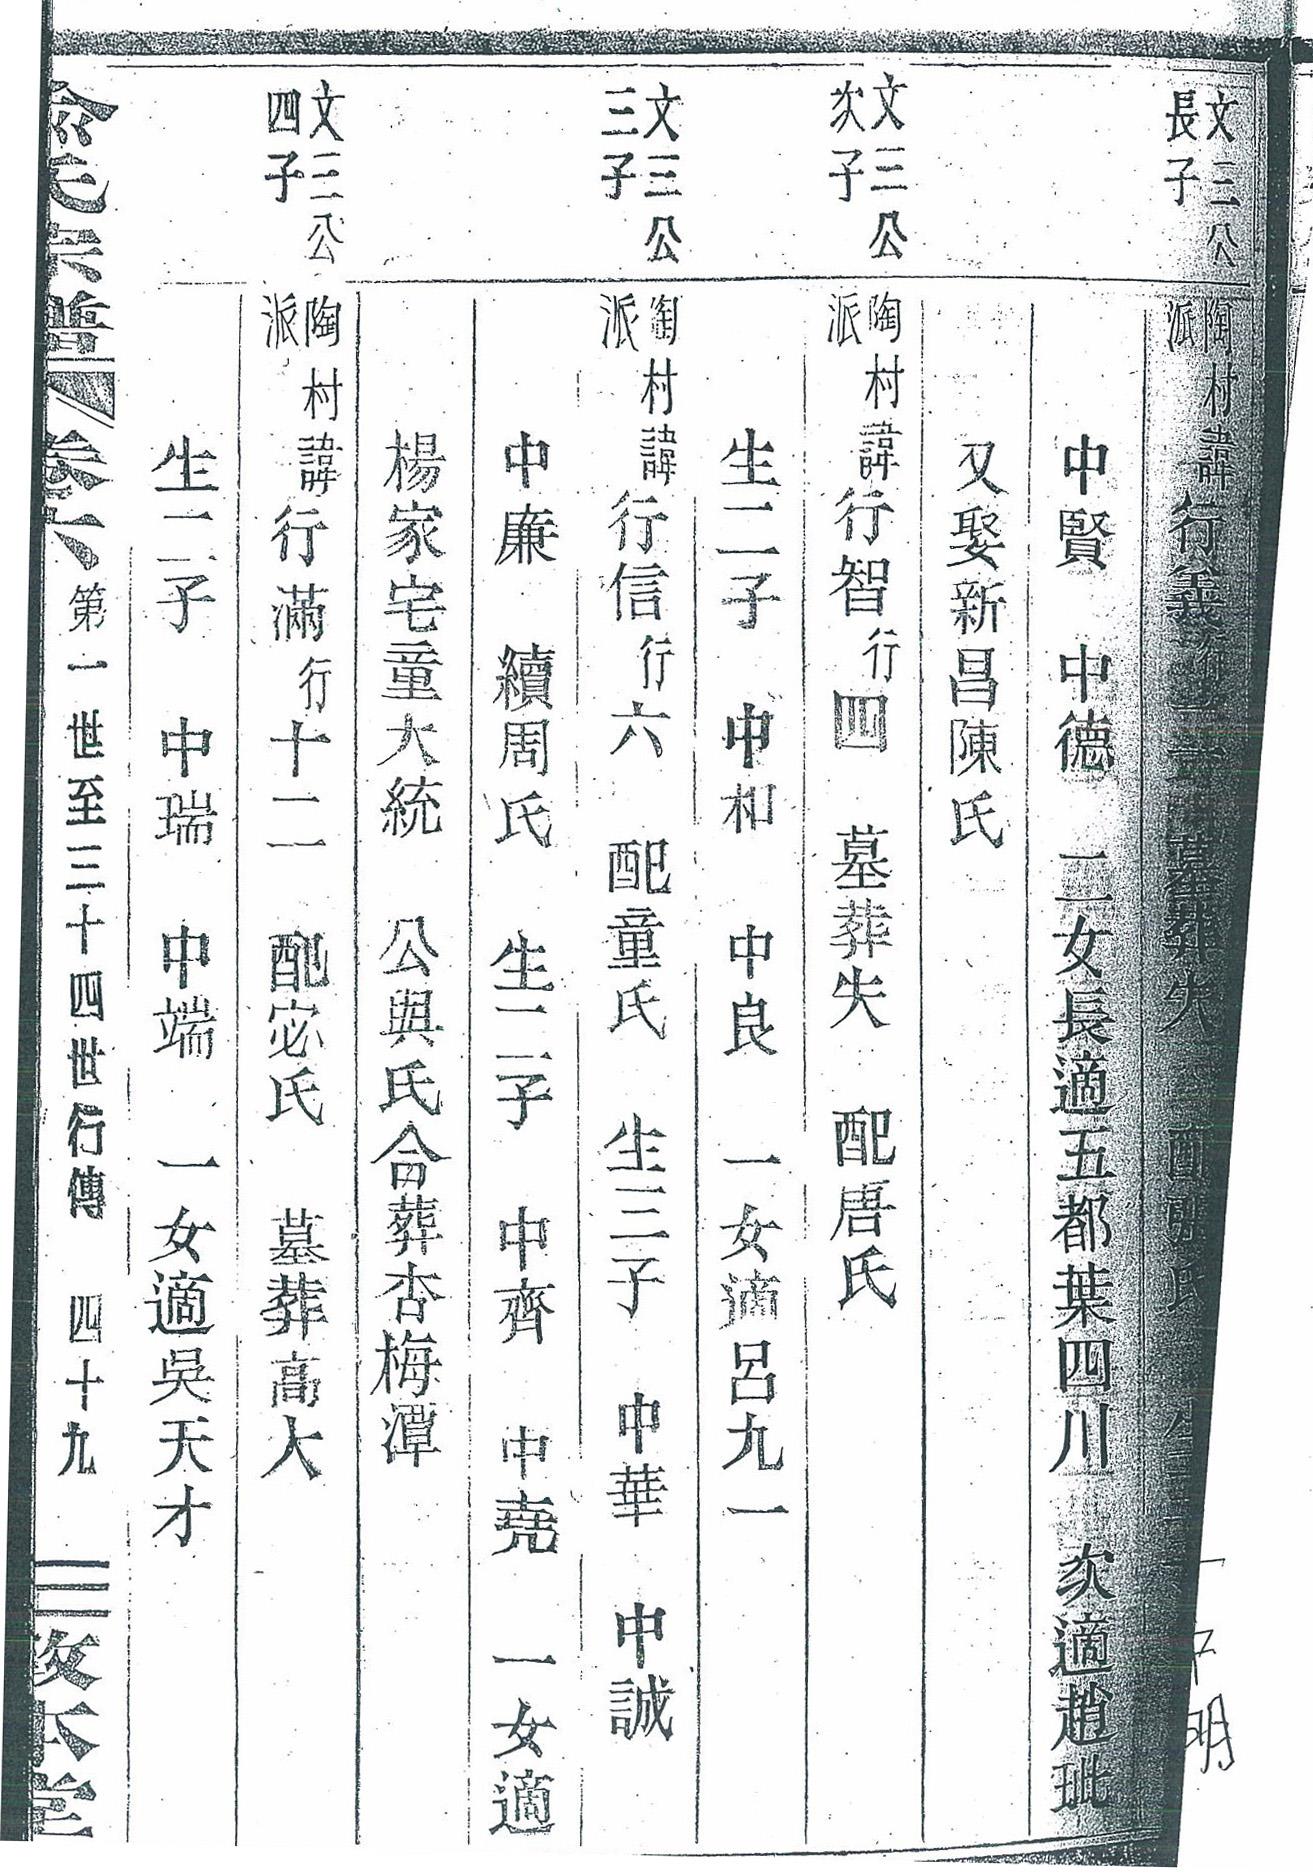 文三公
長子
陶村
派
諱行義 墓葬失 配 氏 生
中明
中賢 中德 二女長適五都葉四川 次適趙玭
又娶新昌陳氏
文三公
次子
陶村
派
諱行智行四 墓葬失 配唐氏
生二子 中和 中良 一女適呂九一
文三公
三子
陶村
派
諱行信行六 配童氏 生三子 中華 中誠
中廉 續周氏 生二子 中齊 中堯 一女適
楊家宅童大統 公與氏合葬杏梅潭
文三公
四子
陶村
派
諱行滿行十二 配宓氏 墓葬高大
生二子 中瑞 中端 一女適吳天才
俞氏宗譜 卷六 第一世至三十四世行傳 四十九 敦本堂